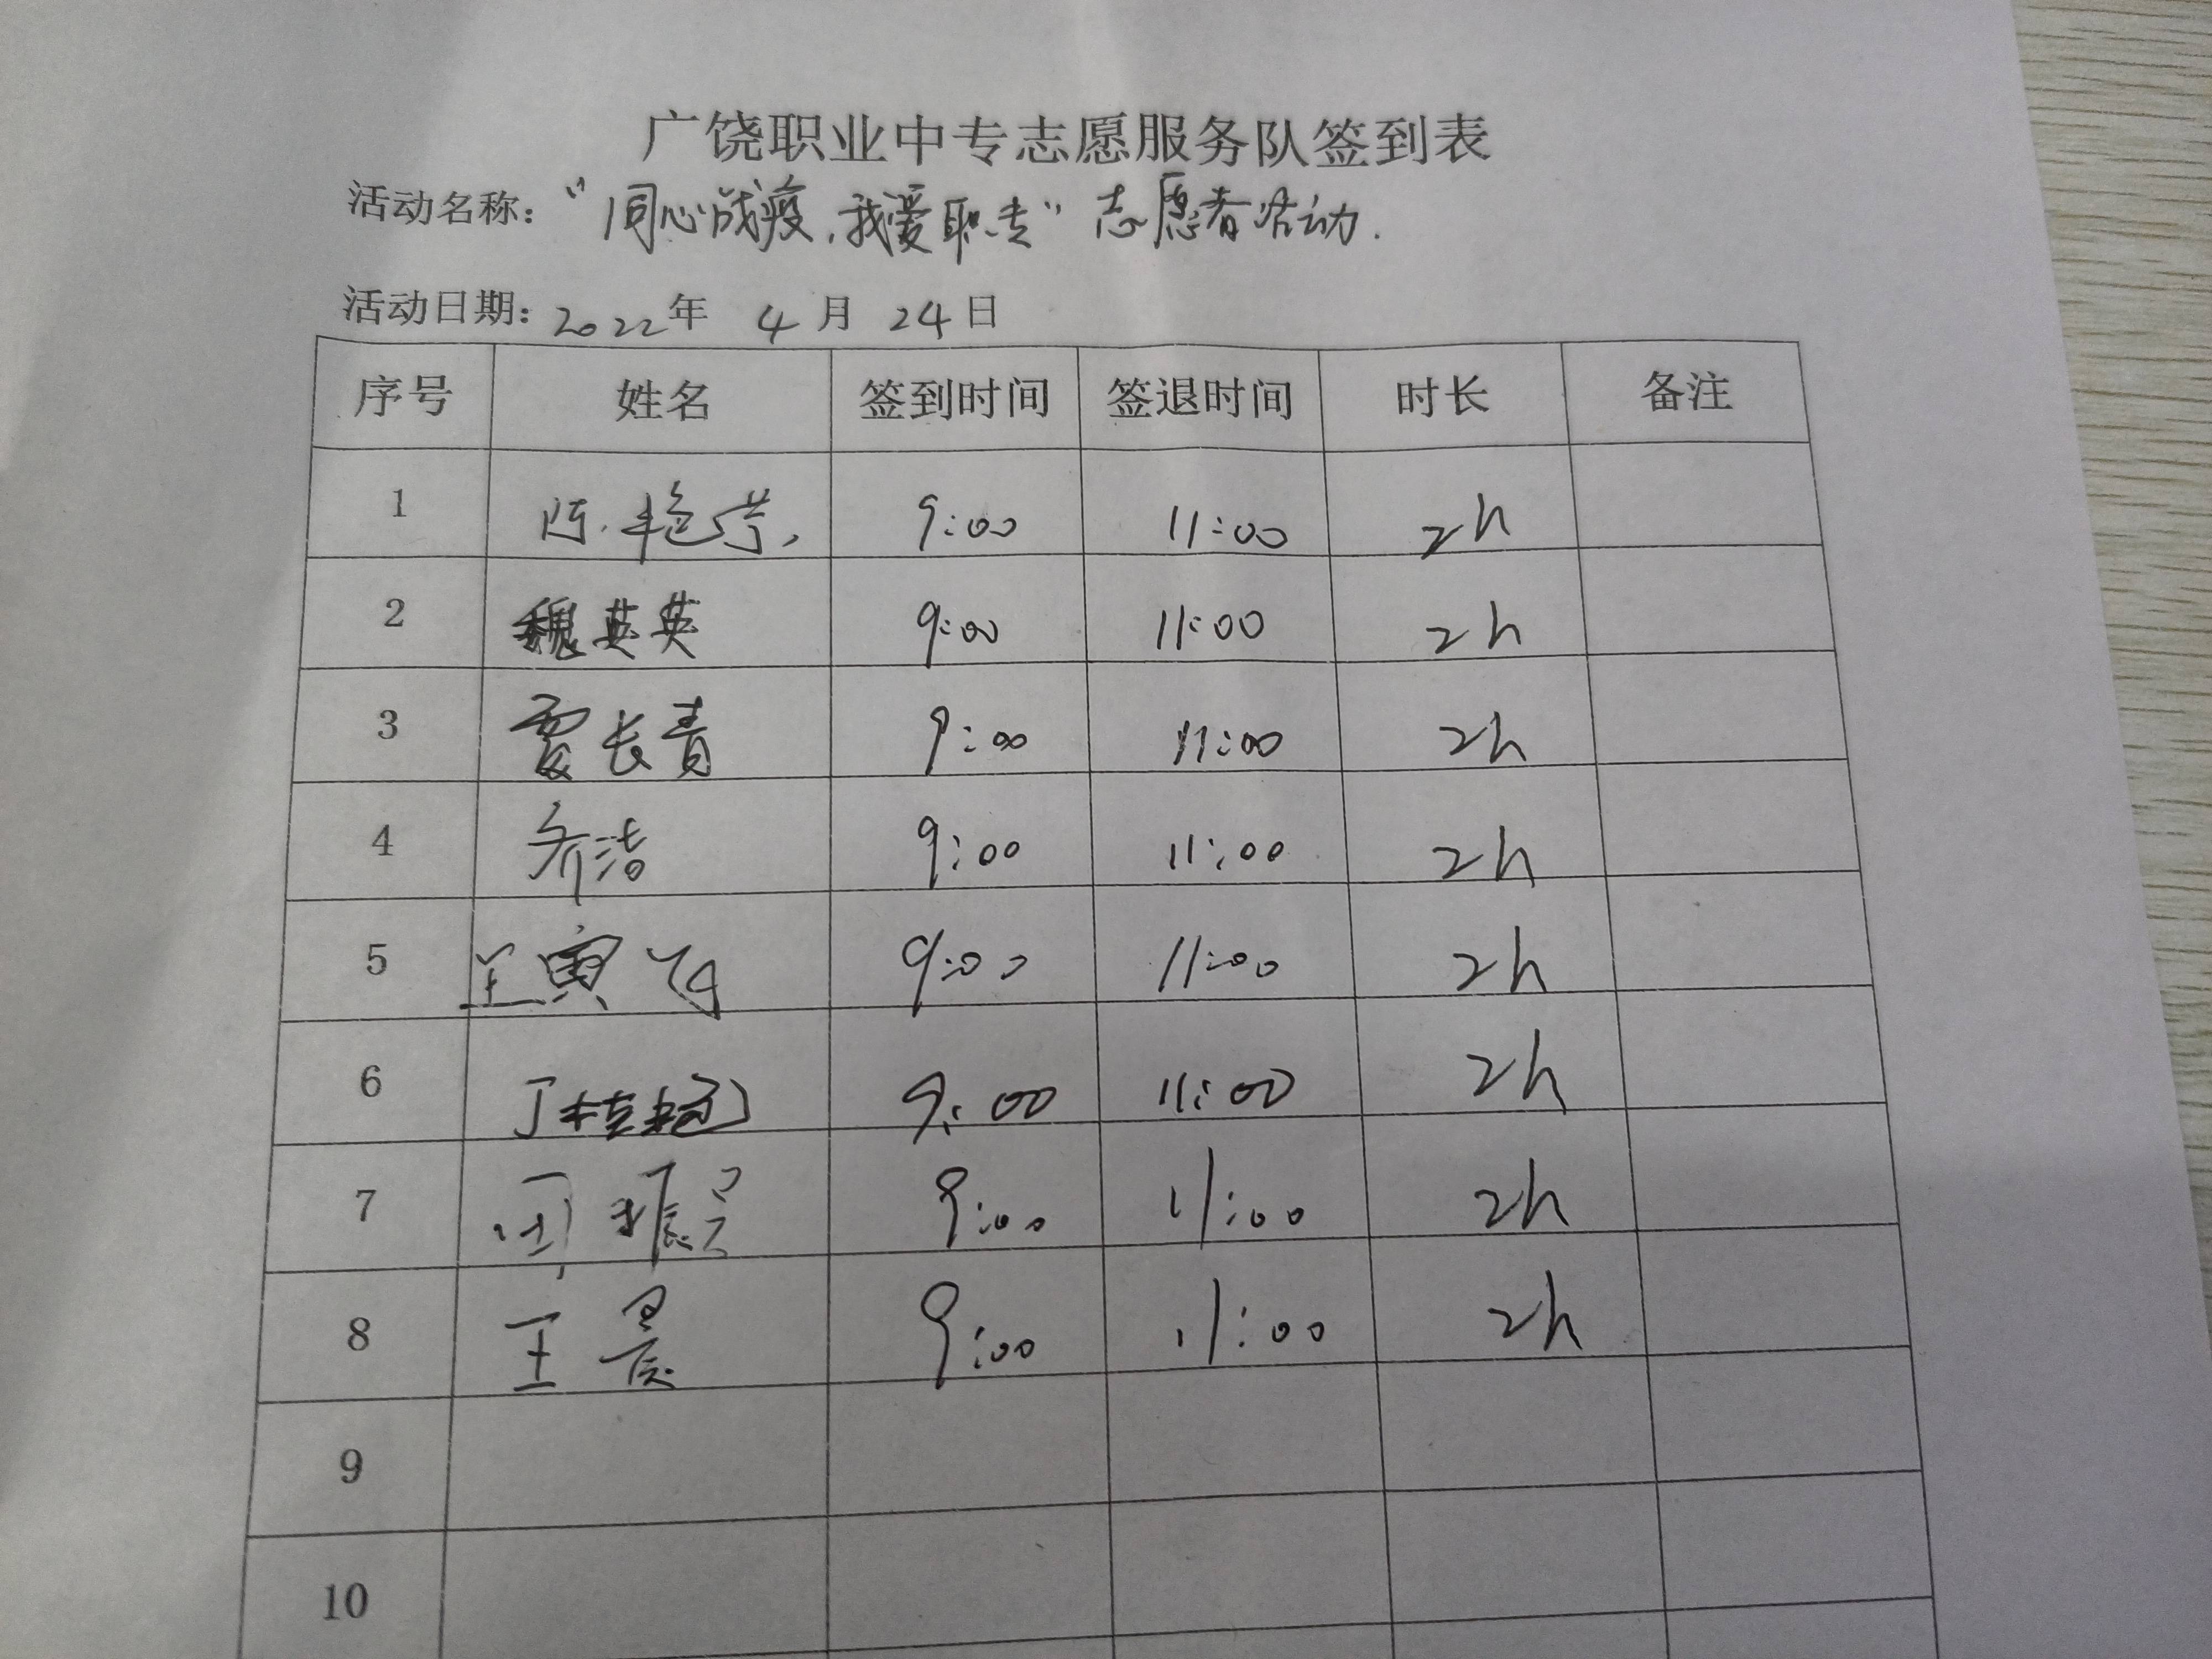 广饶职业中专志愿服务队签到表
活动名称："同心战疫，我爱职专"志愿者活动.
活动日期：2022年 4月 24日
序号 姓名 签到时间 签退时间 时长 备注
1 陈艳芳 9:00 11:00 2h
2 魏英英 9:00 11:00 2h
3 贾长青 9:00 11:00 2h
4 乔洁 9:00 11:00 2h
5 王寅飞 9:00 11:00 2h
6 丁桂艳 9:00 11:00 2h
7 9:00 11:00 2h
8 王晨 9:00 11:00 2h
9
10